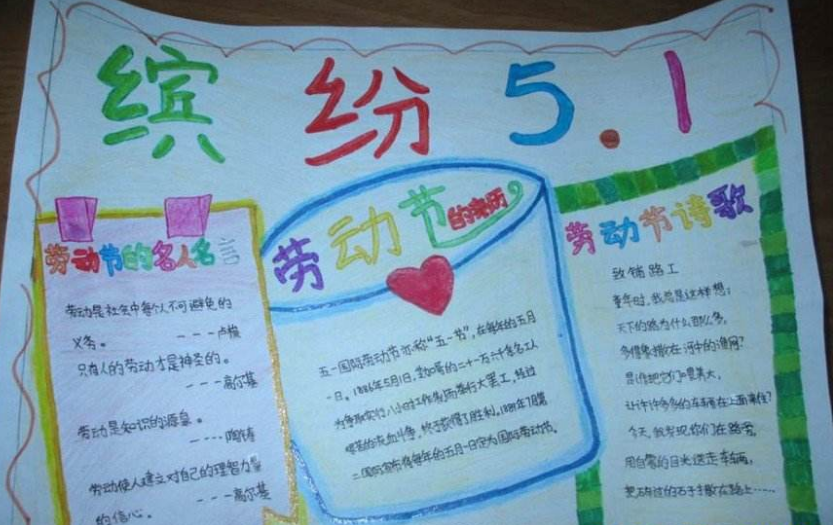 缤纷5.1
劳动节的名人名言
劳动是社会中每个人不可避免的
义务。 ---卢梭
只有人的劳动才是神圣的。
---高尔基
劳动是知识的源泉。
----陶铸
劳动使人建立对自己的理智力量
的信心。 ---高尔基
劳动节的来历
五一国际劳动节亦称“五一节”,在每年的五月
一日。1886年5月1日,芝加哥的二十一万六千余名工人
为争取实行八小时工作制而举行大罢工,经过
艰苦的流血斗争,终于获得了胜利。1889年7月第
二国际宣布将每年的五月一日定为国际劳动节。
劳动节诗歌
致铺路工
童年时,我总是这样想:
天下的路为什么那么多,
多得象撒在河中的渔网?
是谁把它们
让许许多多的车辆在上面来往?
今天,我发现你们在路旁,
用自豪的目光送走车辆,
把 的石子撒在路上……